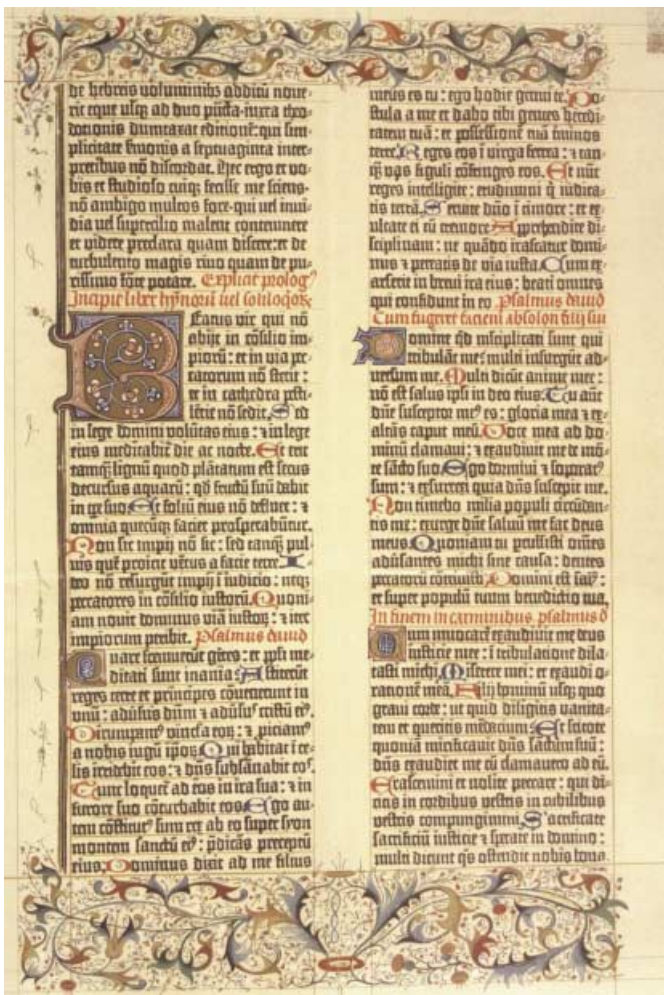 de hebreis voluminibꝫ additū nove-
rit eque usqꝫ ad duo pūcta·iuxta theo-
dotionis dumtaxat editionē:qui sim-
plicitate sermonis a septuaginta inter-
pretibus nō discordat. Hec ergo et vo-
bis et studioso cuiqꝫ fecisse me sciens·
nō ambigo multos fore·qui vel invi-
dia vel supercilio malent contemnere
et videre preclara quam discere:et de
turbulento magis rivo quam de pu-
rissimo fōte potare. Explicit prologꝰ
Incipit liber hymnorū vel soliloqorꝫ
Beatus vir qui nō
abijt in cōsilio im-
piorū: et in via pec-
catorum nō stetit:
et in cathedra pesti-
lētie nō sedit. Sed
in lege domini volūtas eius: ⁊ in lege
eius meditabit̄ die ac nocte. Et erit
tamqꝫ lignū quod plātatum est secus
decursus aquarū: qđ fructū suū dabit
in tꝑe suo. Et foliū eius nō defluet: ⁊
omnia quecūqꝫ faciet prosperabūtur.
Non sic impij nō sic: sed tanqꝫ pul-
vis quē proicit vētus a facie terre. I-
deo nō resurgūt impij ī iudicio: neqꝫ
peccatores in cōsilio iustorū. Quoni-
am novit dominus viā iustorꝫ: ⁊ iter
impiorum peribit. Psalmus david
Quare fremuerūt gētes: et ppli me-
ditati sunt inania: Astiterūt
reges terre et principes cōvenerunt in
unū: adūsus dūm ⁊ adūsuꝰ cristū eiꝰ.
Dirumpamꝰ vincla eoꝝ: ⁊ piciamꝰ
a nobis iugū ipoꝝ. Qui habitat ī ce-
lis irridebit eos: ⁊ dn̄s subsānabit eoꝰ.
Tunc loquet̄ ad eos in ira sua: ⁊ in
furore suo cōturbabit eos. Ego au-
tem cōstitutꝰ sum rex ab eo super syon
montem sanctū eiꝰ: p̄dicās preceptū
eius. Dominus dixit ad me filius
meus es tu: ego hodie genui te. Po-
stula a me et dabo tibi gētes heredi-
tatem tuā: et possessionē tuā tīminos
terre. Reges eos ī virga ferrea: ⁊ tan-
qꝫ vas figuli cōfringes eos. Et nūc
reges intelligite: erudimini q̄ iudica-
tis terrā. Servite dn̄o ī timore: et ex-
ultate ei cū tremore. Apprehendite di-
sciplinam: ne quādo irascatur domi-
nus ⁊ pereatis de via iusta. Cum ex-
arserit in brevi ira eius: beati omnes
qui confidunt in eo. Psalmus david
Cum fugeret a faciem absolon filij sui
Domine qđ multiplicati sunt qui
tribulāt me: multi insurgūt ad-
versum me. Multi dicūt anime mee:
nō est salus ipsi in deo eius. Tu aūt
dn̄e susceptor meꝰ es: gloria mea ⁊ ex-
altās caput meū. Voce mea ad do-
minū clamavi: ⁊ exaudivit me de mō-
te sācto suo. Ego dormivi ⁊ soporatꝰ
sum: ⁊ exsurrexi quia dn̄s suscepit me.
Non timebo milia populi circūdan-
tis me: exurge dn̄e salvū me fac deus
meus. Quoniam tu percussisti omēs
adūsantes michi sine causa: dentes
peccatorū cōtrivisti. Domini est salꝰ:
et super populū tuum benedictio tua.
In finem in carminibus psalmus d̄
Cum invocarē exaudivit me deus
iusticie mee: ī tribulatione dila-
tasti michi. Miserere mei: et exaudi o-
rationē meā. Filij hominū usqꝫ quo
gravi corde: ut quid diligitis vanita-
tem et queritis mēdacium: Et scitote
quoniā mirificavit dn̄s sanctum suū:
dn̄s exaudiet me cū clamavero ad eū.
Irascimini et nolite peccare: qui di-
citis in cordibus vestris in cubilibus
vestris compungimini. Sacrificate
sacrificiū iusticie ⁊ sperate in domino:
multi dicunt qͥs ostendit nobis bona.